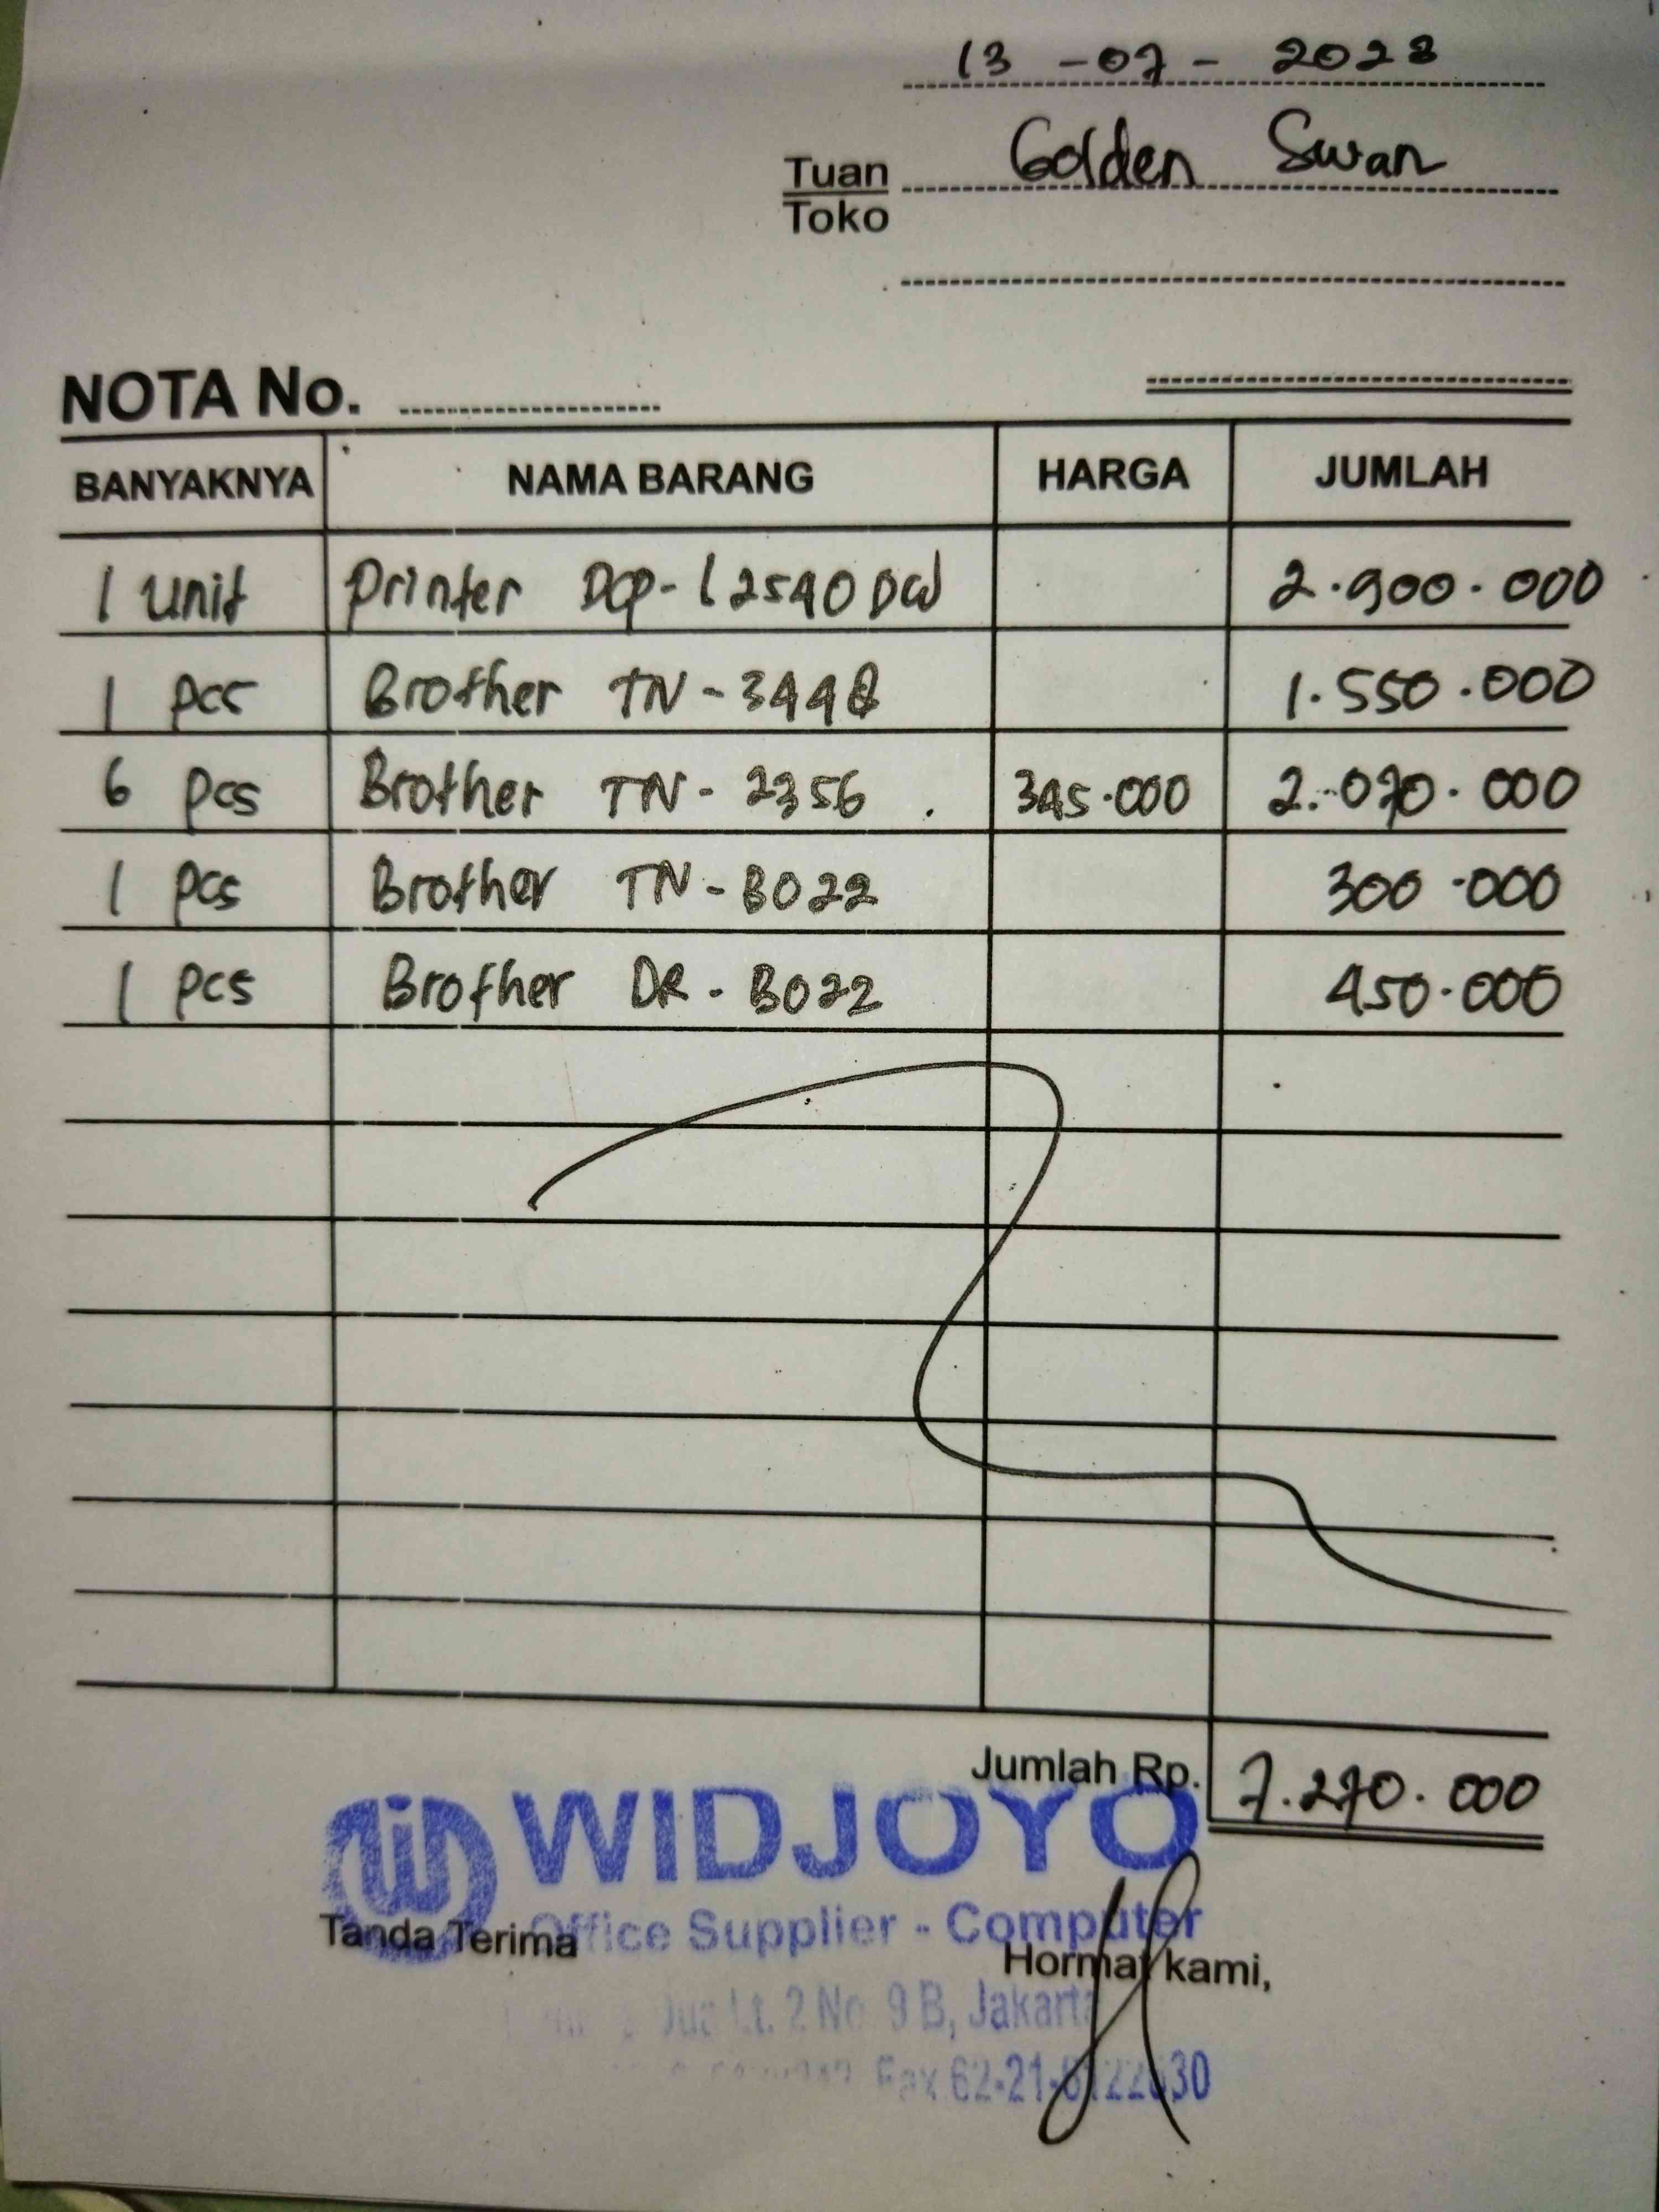 13 - 07 - 2023
Tuan Golden Swan
Toko
NOTA No.
BANYAKNYA NAMA BARANG HARGA JUMLAH
1 Unit Printer DCP-L2540DW 2.900.000
1 pcs Brother TN-3448 1.550.000
6 pcs Brother TN-2356 345.000 2.070.000
1 pcs Brother TN-B022 300.000
1 pcs Brother DR-B022 450.000
Jumlah Rp. 7.270.000
WIDJOYO
Office Supplier - Computer
Tanda Terima
Hormat kami,
Dua Lt. 2 No 9 B, Jakarta
Fax 62-21-